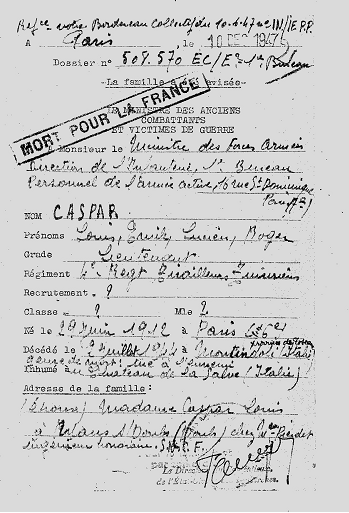 Refce votre Bordereau Collectif du 10.4.47 n° IN/IE P.P.
A Paris, le 10 DEC 1947
Dossier n° 508.570 EC/Es 1er Bureau
-La famille a été avisée-
MORT POUR LA FRANCE
LE MINISTRE DES ANCIENS
COMBATTANTS
ET VICTIMES DE GUERRE
à Monsieur le Ministre des Forces Armées
Direction de l'Infanterie, 1er Bureau
Personnel de l'Armée active, 16 rue St Dominique
Paris (7e)
NOM CASPAR
Prénoms Louis, Emile, Lucien, Roger
Grade Lieutenant
Régiment 4e Regt Tirailleurs Tunisiens
Recrutement . ?
Classe - ? Mle ?
Né le 29 Juin 1912 à Paris
Décédé le 2 Juillet 1944 à
tué à l'ennemi
Inhumé au (Italie)
Adresse de la famille:
(épouse) Madame Caspar Louis
à (Doubs) chez
ingénieur honoraire. S.N.C.F.